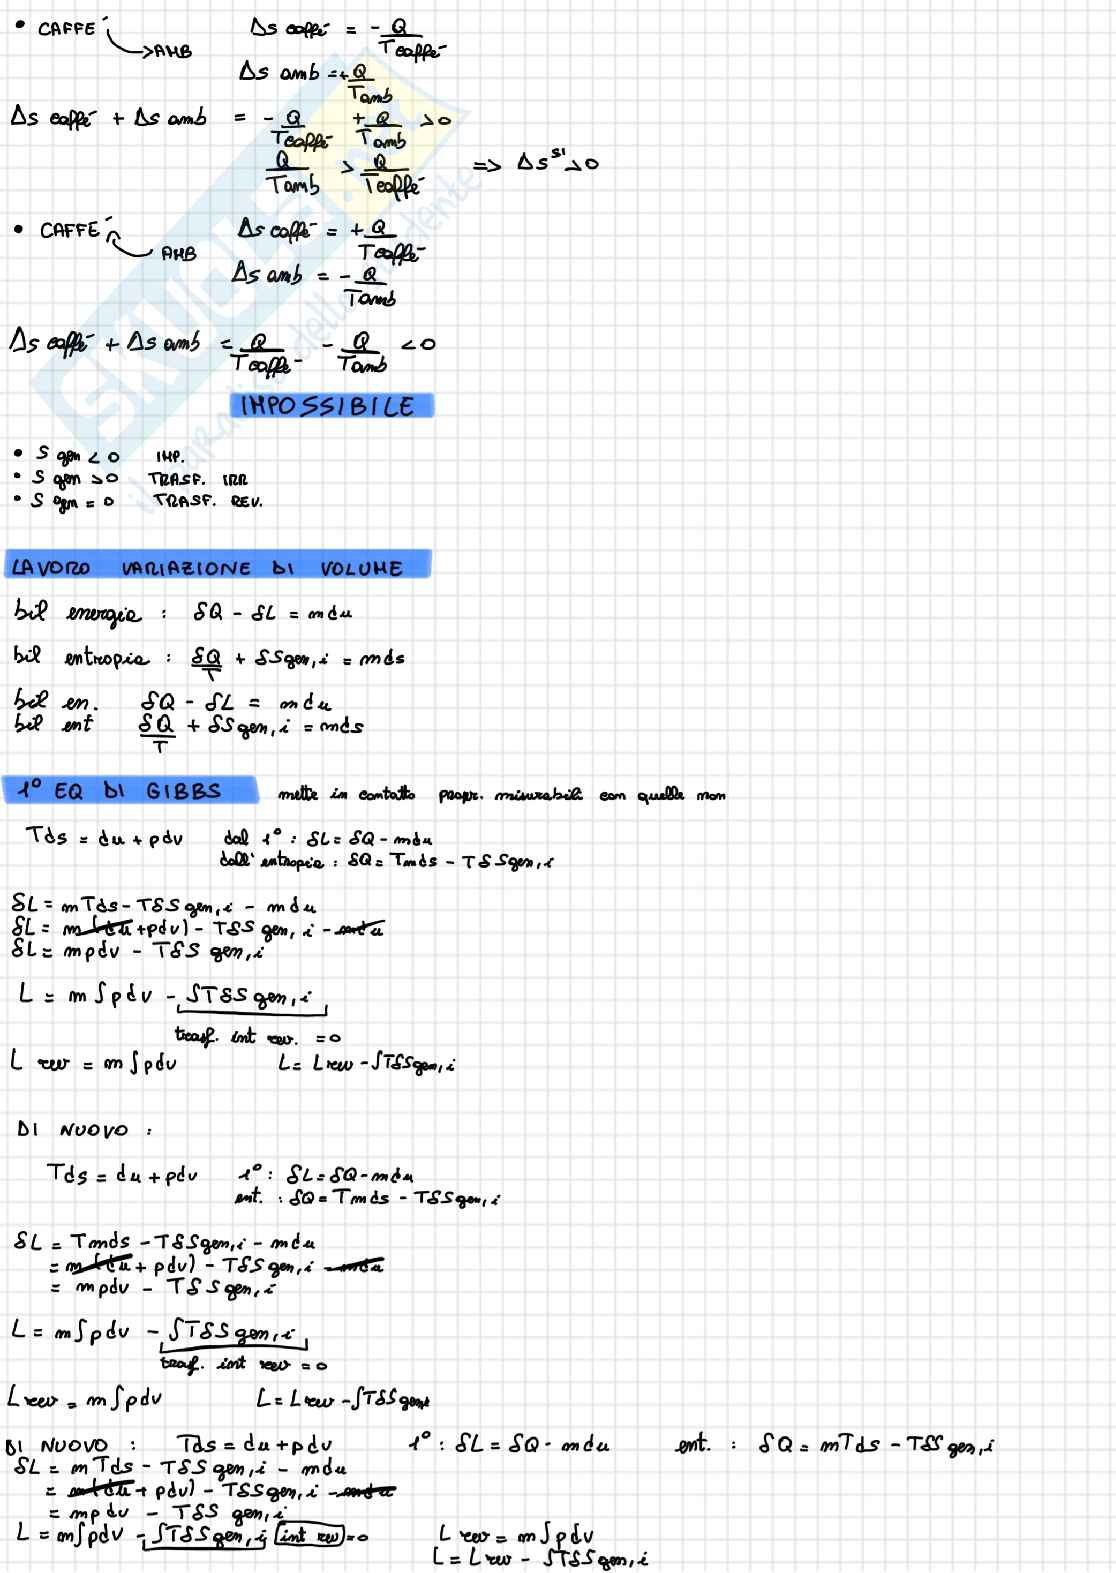 • CAFFE' Δs caffè = - Q/Tcaffè
→ AMB
Δs amb = + Q/Tamb
Δs caffè + Δs amb = - Q/Tcaffè + Q/Tamb > 0
Q/Tamb > Q/Tcaffè => Δs^si > 0
• CAFFE' Δs caffè = + Q/Tcaffè
AMB
Δs amb = - Q/Tamb
Δs caffè + Δs amb = Q/Tcaffè - Q/Tamb < 0
IMPOSSIBILE
• S gen < 0 IMP.
• S gen > 0 TRASF. IRR
• S gen = 0 TRASF. REV.
LAVORO VARIAZIONE DI VOLUME
bil energia : δQ - δL = mdu
bil entropia : δQ/T + δSgen,i = mds
bil en. δQ - δL = mdu
bil ent δQ/T + δSgen,i = mds
1° EQ DI GIBBS mette in contatto propr. misurabili con quelle non
Tds = du + pdv dal 1° : δL = δQ - mdu
dall'entropia : δQ = Tmds - TδSgen,i
δL = mTds - TδSgen,i - mdu
δL = m(du + pdv) - TδSgen,i - mdu
δL = mpdv - TδSgen,i
L = m∫pdv - ∫TδSgen,i
trasf. int rev. = 0
L rev = m∫pdv L = Lrev - ∫TδSgen,i
DI NUOVO :
Tds = du + pdv 1° : δL = δQ - mdu
ent. : δQ = Tmds - TδSgen,i
δL = Tmds - TδSgen,i - mdu
= m(du + pdv) - TδSgen,i - mdu
= mpdv - TδSgen,i
L = m∫pdv - ∫TδSgen,i
trasf. int rev = 0
Lrev = m∫pdv L = Lrev - ∫TδSgen,i
DI NUOVO : Tds = du + pdv 1° : δL = δQ - mdu ent. : δQ = mTds - TδSgen,i
δL = mTds - TδSgen,i - mdu
= m(du + pdv) - TδSgen,i - mdu
= mpdv - TδSgen,i
L = m∫pdv - ∫TδSgen,i int rev = 0 L rev = m∫pdv
L = Lrev - ∫TδSgen,i
SKUOLA.net
il paradiso dello studente